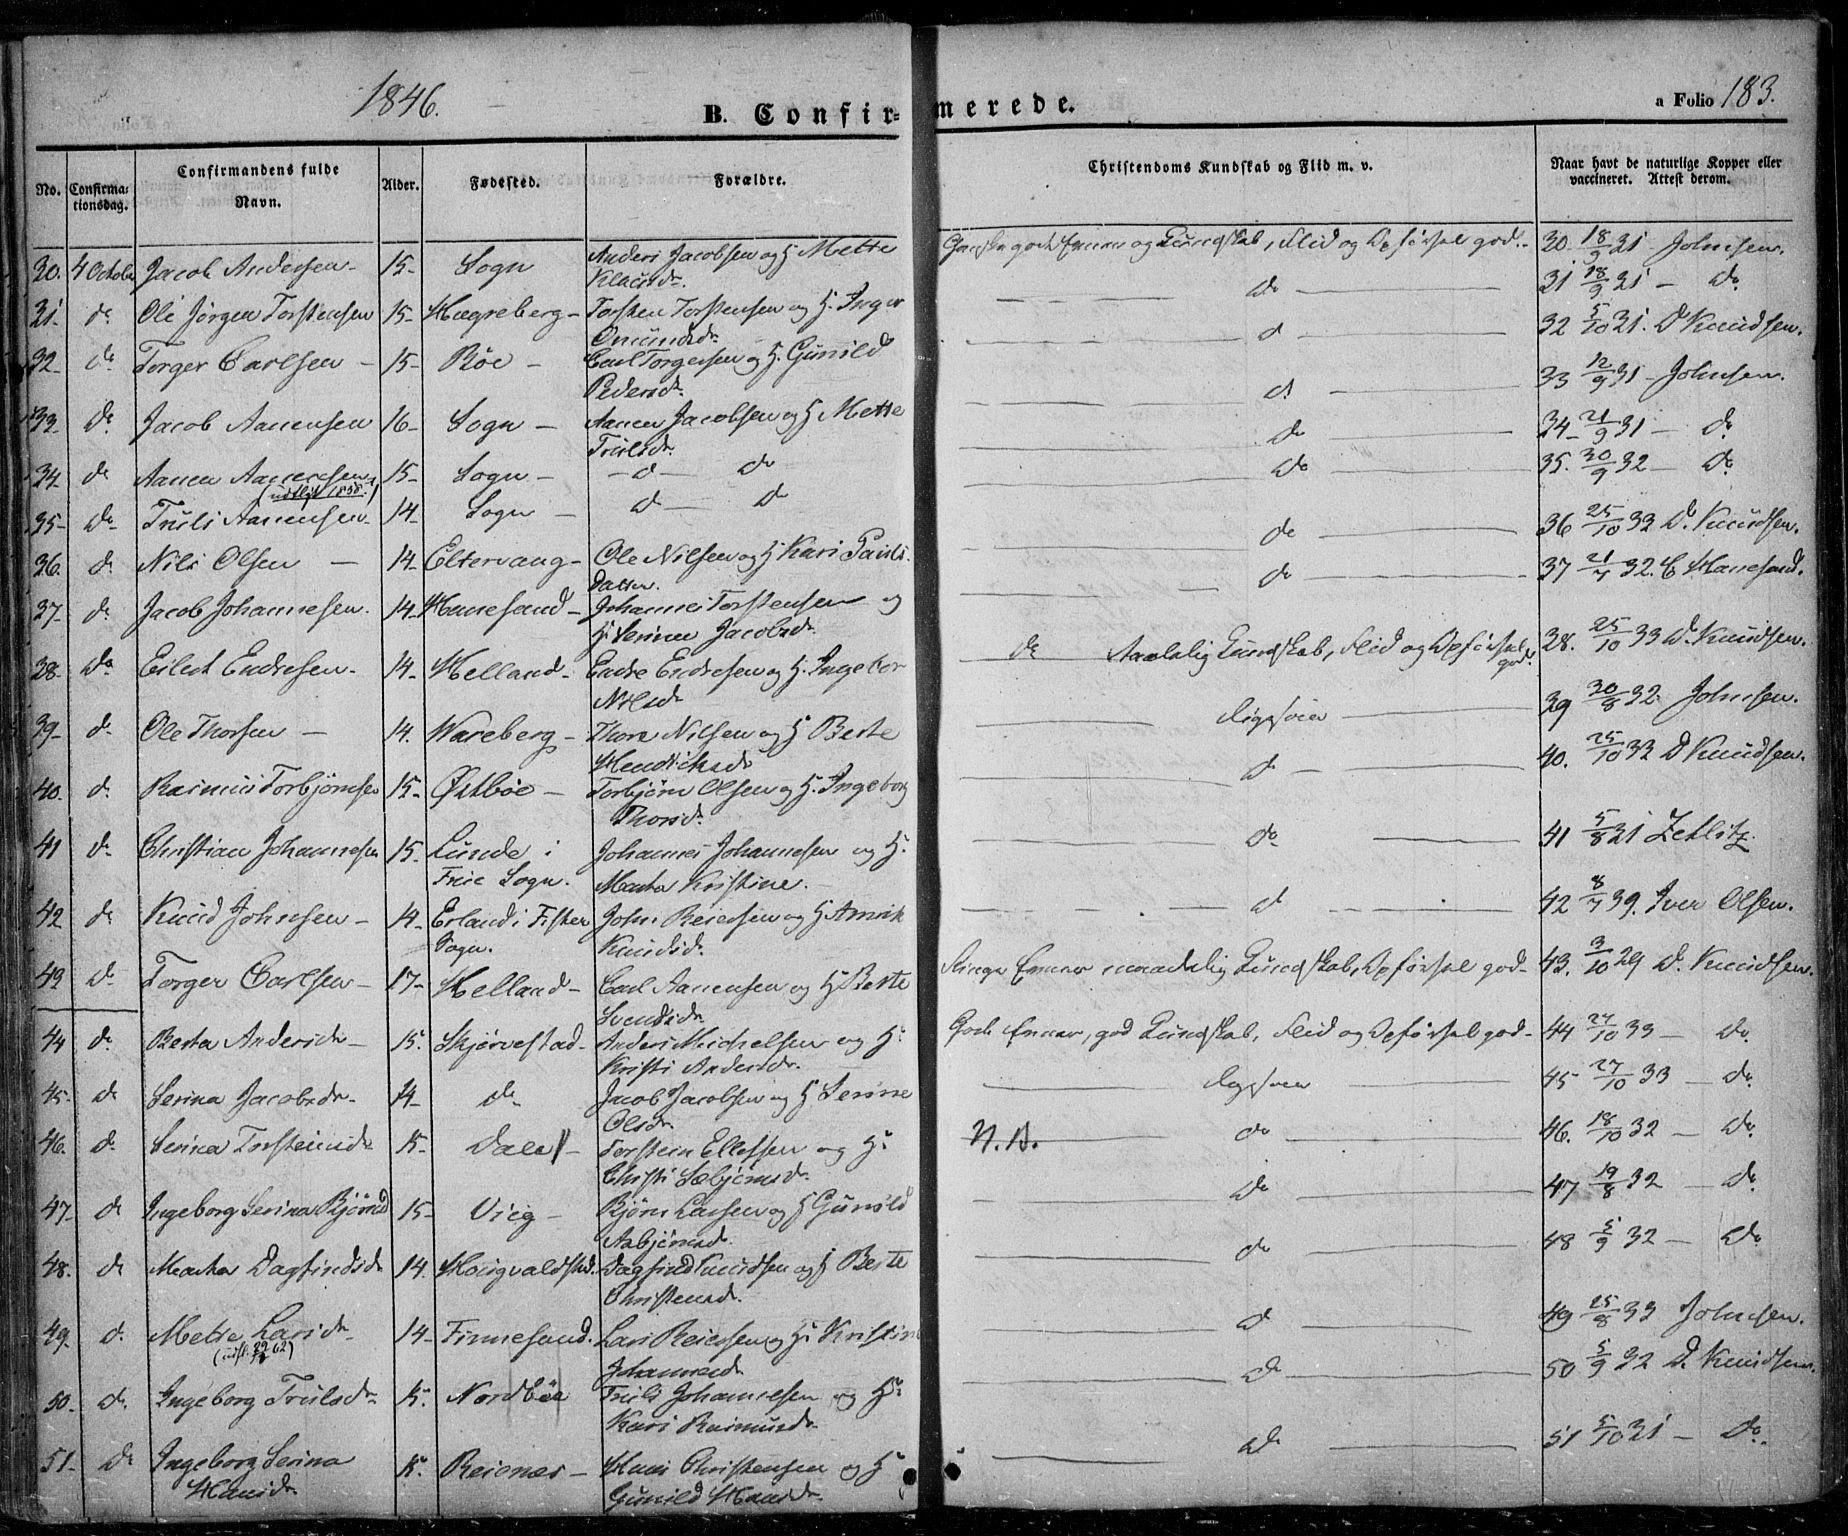 1846.
B. Confirmerede.
a Folio 183.
No. Confirmationsdag. Confirmandens fulde Navn. Alder. Fødested. Forældre. Christendoms Kundskab og Flid m. v. Naar havt de naturlige Kopper eller vaccineret. Attest derom.
30. 4 Octobr Jacob Andersen 15 Sogn Anders Jacobsen og H Mette
Klausd. Kundskab, Flid og Opførsel god. 30. 18/9 31 Johnsen.
31 d. Ole Jörgen Torstensen 15 Hægreberg Torsten Torstensen og H. Inger
Omundsd. do 31 18/9 31 do
32 do Torger Carlsen 15 Bøe Carl Torgersen og H. Gunild
Pedersd. d 32 5/10 31. D Knudsen.
33 do Jacob Aanensen 16 Sogn Aanen Jacobsen og H Mette
Trulsd. d. 33 12/9 31 Johnsen.
34 do Aanen Aanensen 15 Sogn d do do 34 21/9 31 do
(udflyt 1858.)
35 do Truls Aanensen 14 Sogn d d do 35. 30/9 32 do
36 d. Nils Olsen 14 Eltervaag Ole Nilsen og H Kari
Datter. do 36 25/10 32 D. Knudsen.
37 d. Jacob Johannesen. 14 Hanesand Johannes Torstensen og
H. Serina Jacobsd. do 37 21/7 32. C Hanesand.
38 do Eilert Endresen. 14 Helland Endre Endresen og H. Ingebor
Nilsd. do Maadelig Kundskab, Flid og Opførsel god. 38. 25/10 33 D. Knudsen.
39 d. Ole Thorsen 14. Wareberg Thore Nilsen og H Berte
Hendriksd. ligesaa 39 30/8 32. Johnsen.
40. d. Rasmus Torbjørnsen 15 Østbøe Torbjørn Olsen og H. Ingeborg
Thorsd. d 40. 25/10 33 D Knudsen.
41 d. Christian Johannesen 15. Lunde i Johannes Johannesen og H.
Sogn. Martha Kristine. do 41 5/8 31 Zetlitz
42 do Knud Johnsen 14. Erland i Fister John Reiersen og H
Sogn. Knudsd. d 42 8/7 39. Iver Olsen.
43 do Torger Carlsen 17 Helland Carl Aanensen og H Berte
Svendsd. Ringe Evner, maadelig Kundskab, Opførsel god 43. 3/10 29 D. Knudsen.
44 do Berta Andersd. 15. Skjørvestad Anders Michelsen og H.
Kristi Andersd. Gode Evner, god Kundskab, Flid og Opførsel god 44 27/10 33 do
45 do Serina Jacobsd. 14 do Jacob Jacobsen og H Serine
Olsd. ligesaa 45 27/10 33 do
46. d. Serina Torsteinsd. 15 Dale Torstein Ellefsen og H.
Christi N.B. do 46. 18/10 32 do
47. do Ingeborg Serina Bjørnsd 15 Vieg Bjørn Larsen og H Gunild
Asbjørnsd. do 47 19/8 32 do
48. do Martha Dagfindsd. 14. Dagfind Knudsen og H Berte
Christensd. do 48 5/9 32 do
49. d. Mette Larsd. 14 Finnesand. Lars Reiersen og H. Kristine
Johannesd. d 49 25/8 33 Johnsen.
50. do Ingeborg Trulsd. 15. Nordbøe Truls Johannesen og H.
Kari Rasmusd. do 50 5/9 32 D. Knudsen.
51. do Ingeborg Serina 15. Reienes Hans Christensen og H
Hansd. Gunild Hansd. do 51 5/10 31 do